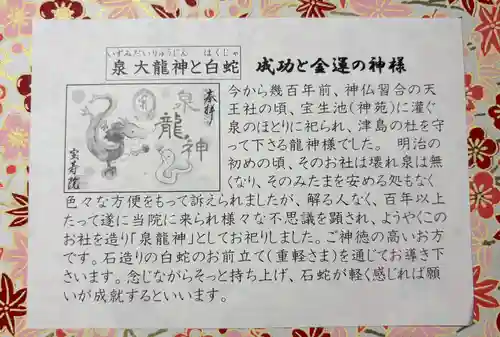 いずみだいりゅうじん　はくじゃ
泉 大龍神と白蛇
成功と金運の神様
奉拝
泉龍神
宝寿院
今から幾百年前、神仏習合の天
王社の頃、宝生池(神苑)に灌ぐ
泉のほとりに祀られ、津島の杜を守
って下さる龍神様でした。　明治の
初めの頃、そのお社は壊れ泉は無
くなり、そのみたまを安める処もなく
色々な方便をもって訴えられましたが、解る人なく、百年以上
たって遂に当院に来られ様々な不思議を顕され、ようやくこの
お社を造り「泉龍神」としてお祀りしました。ご神徳の高いお方
です。石造りの白蛇のお前立て(重軽さま)を通じてお導き下
さいます。念じながらそっと持ち上げ、石蛇が軽く感じれば願
いが成就するといいます。